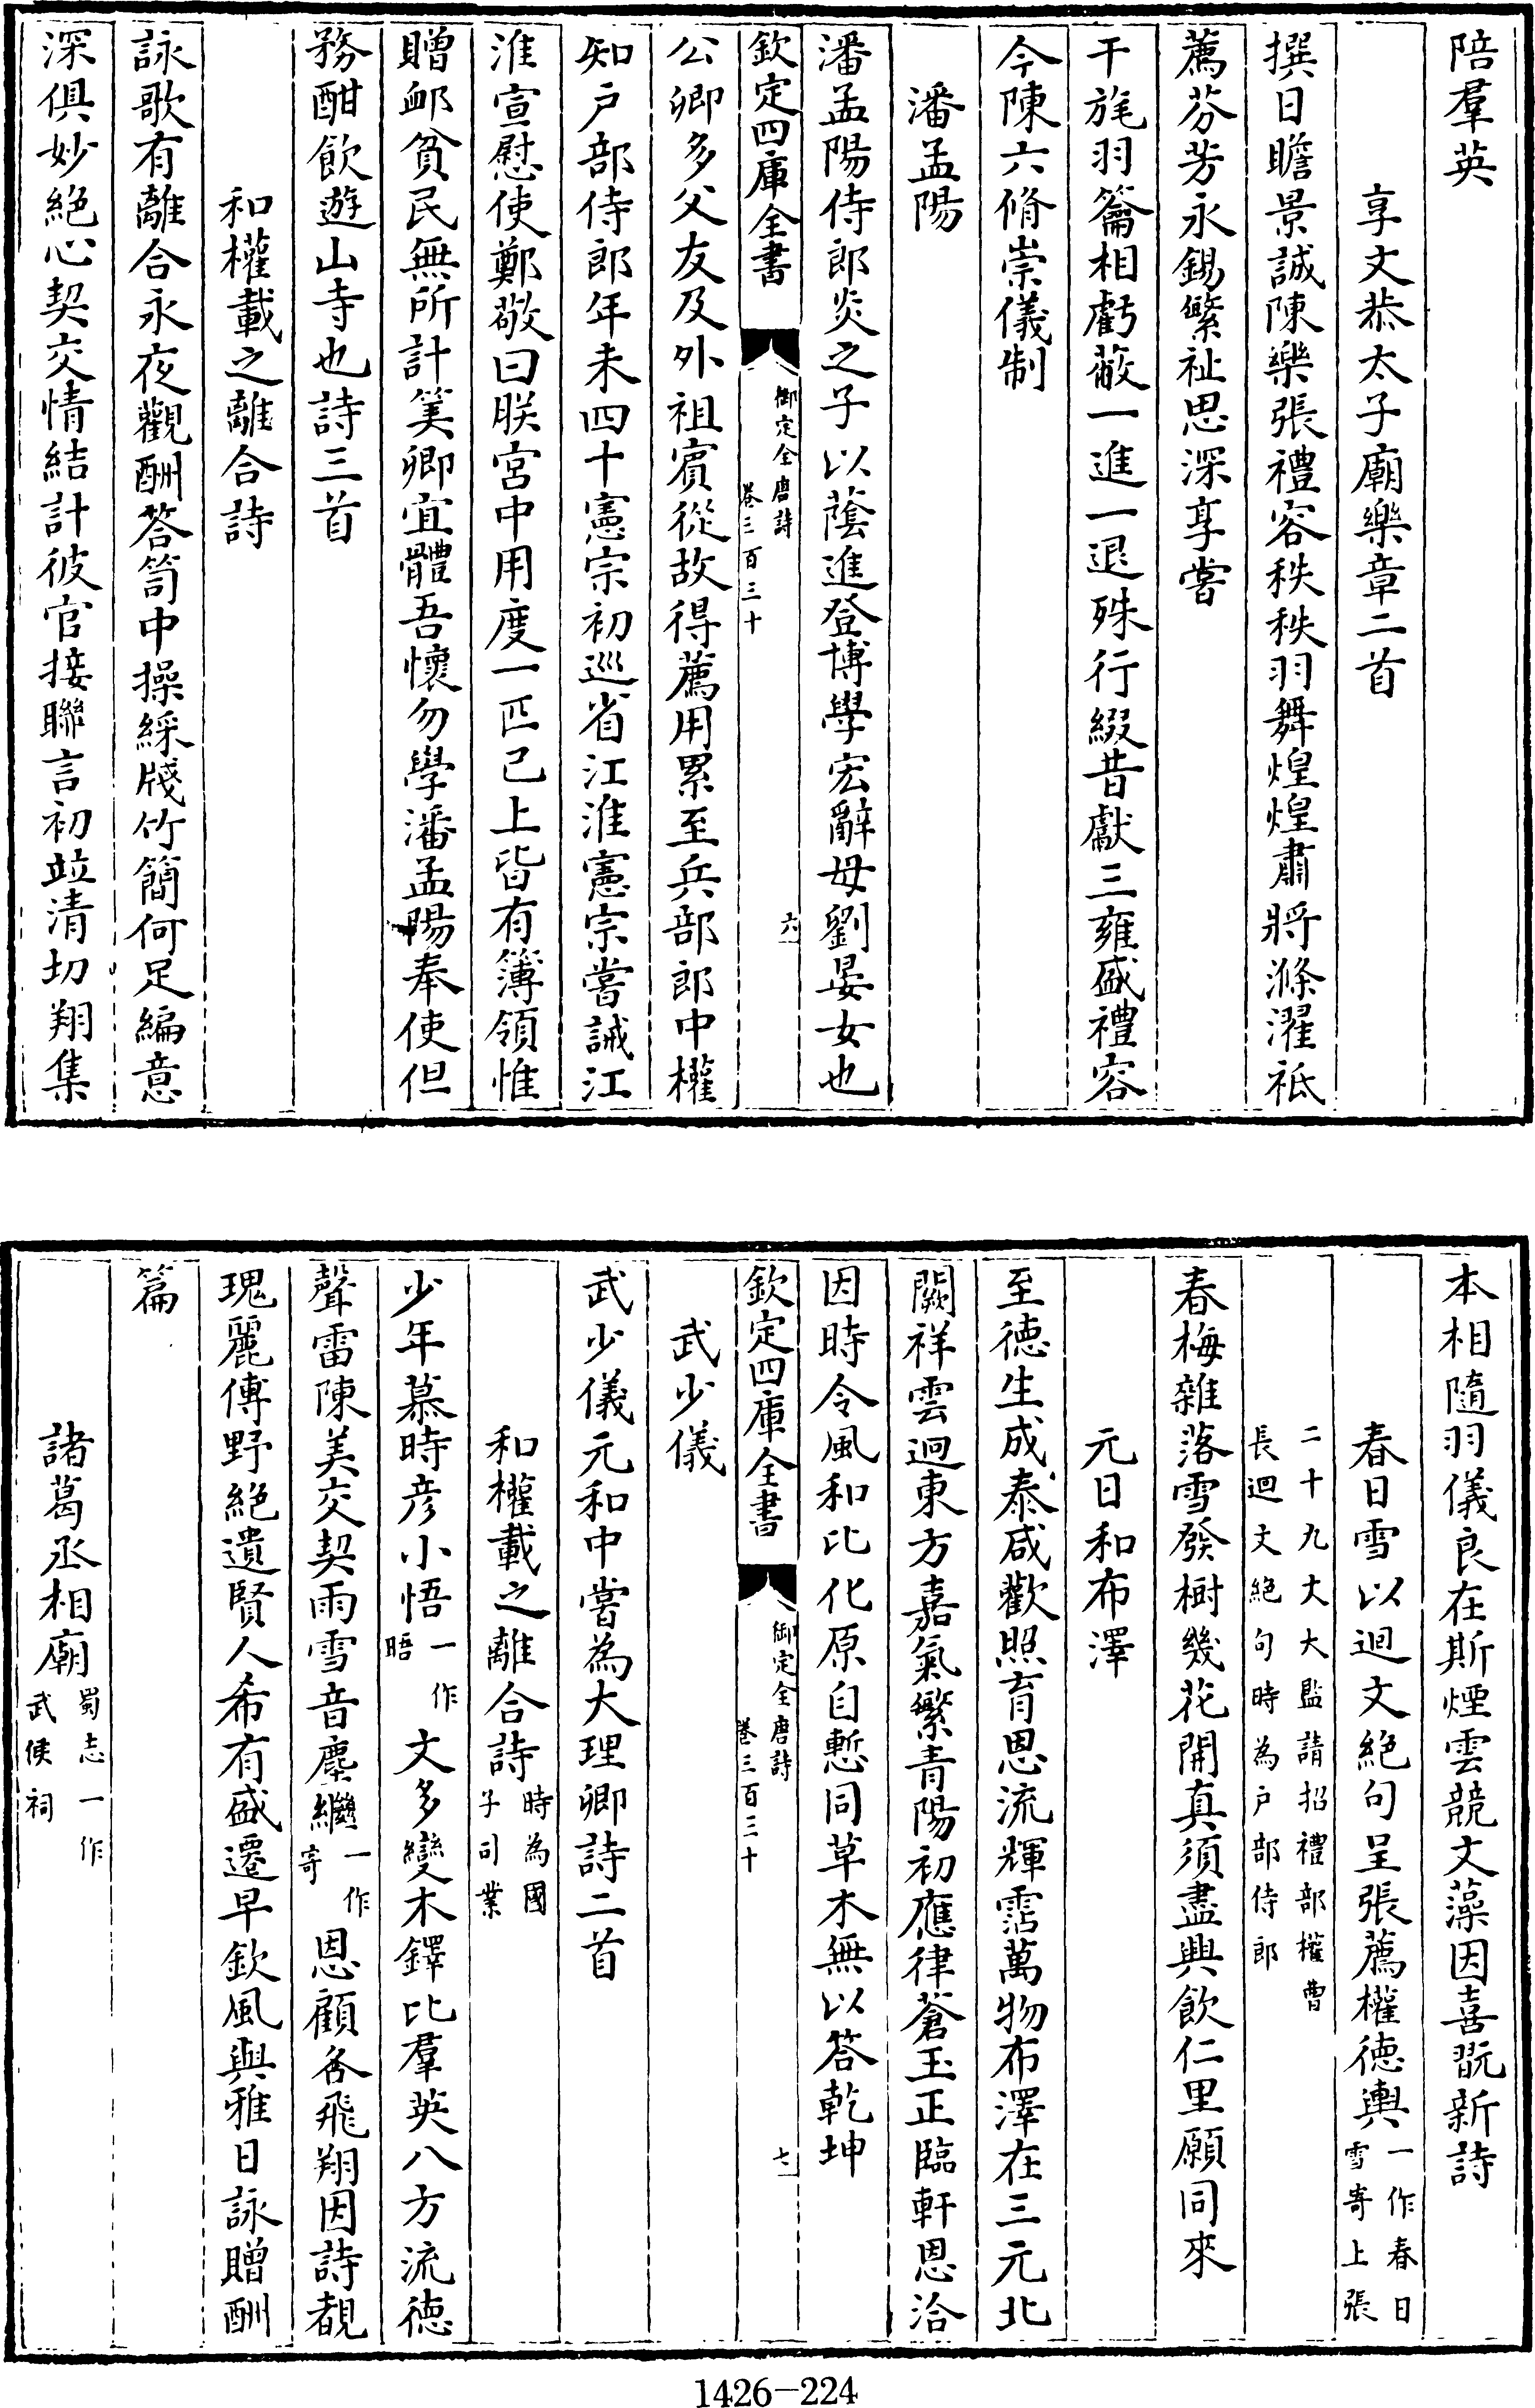 陪羣英
享文恭太子廟樂章二首
撰日瞻景誠陳樂張禮容秩秩羽舞煌煌肅將滌濯祗
薦芬芳永錫繁祉思深享嘗
干旄羽籥相虧蔽一進一退殊行綴昔獻三雍盛禮容
今陳六脩崇儀制
潘孟陽
潘孟陽侍郎炎之子以蔭進登博學宏辭母劉晏女也
欽定四庫全書
御定全唐詩
卷三百三十
六
公卿多父友及外祖賓從故得薦用累至兵部郎中權
知戶部侍郎年未四十憲宗初巡省江淮憲宗嘗誡江
淮宣慰使鄭敬曰朕宮中用度一匹已上皆有簿領惟
賙卹貧民無所計筭卿宜體吾懷勿學潘孟陽奉使但
務酣飲遊山寺也詩三首
和權載之離合詩
詠歌有離合永夜觀酬答笥中操綵牋竹簡何足編意
深俱妙絕心契交情結計彼官接聯言初並清切翔集
本相隨羽儀良在斯煙雲競文藻因喜翫新詩
春日雪以迴文絕句呈張薦權德輿
一作春日
雪寄上張
二十九丈大監請招禮部權曹
長迴文絕句時為戶部侍郎
春梅雜落雪發樹幾花開真須盡興飲仁里願同來
元日和布澤
至德生成泰咸歡照育恩流輝霑萬物布澤在三元北
闕祥雲迥東方嘉氣繁青陽初應律蒼玉正臨軒恩洽
因時令風和比化原自慙同草木無以答乾坤
欽定四庫全書
御定全唐詩
卷三百三十
七
武少儀
武少儀元和中嘗為大理卿詩二首
和權載之離合詩
時為國
子司業
少年慕時彦小悟
一作
晤
文多變木鐸比羣英八方流德
聲雷陳美交契雨雪音塵繼
一作
寄
恩顧各飛翔因詩覩
瑰麗傅野絕遺賢人希有盛遷早欽風與雅日詠贈酬
篇
諸葛丞相廟
蜀志一作
武侯祠
1426-224